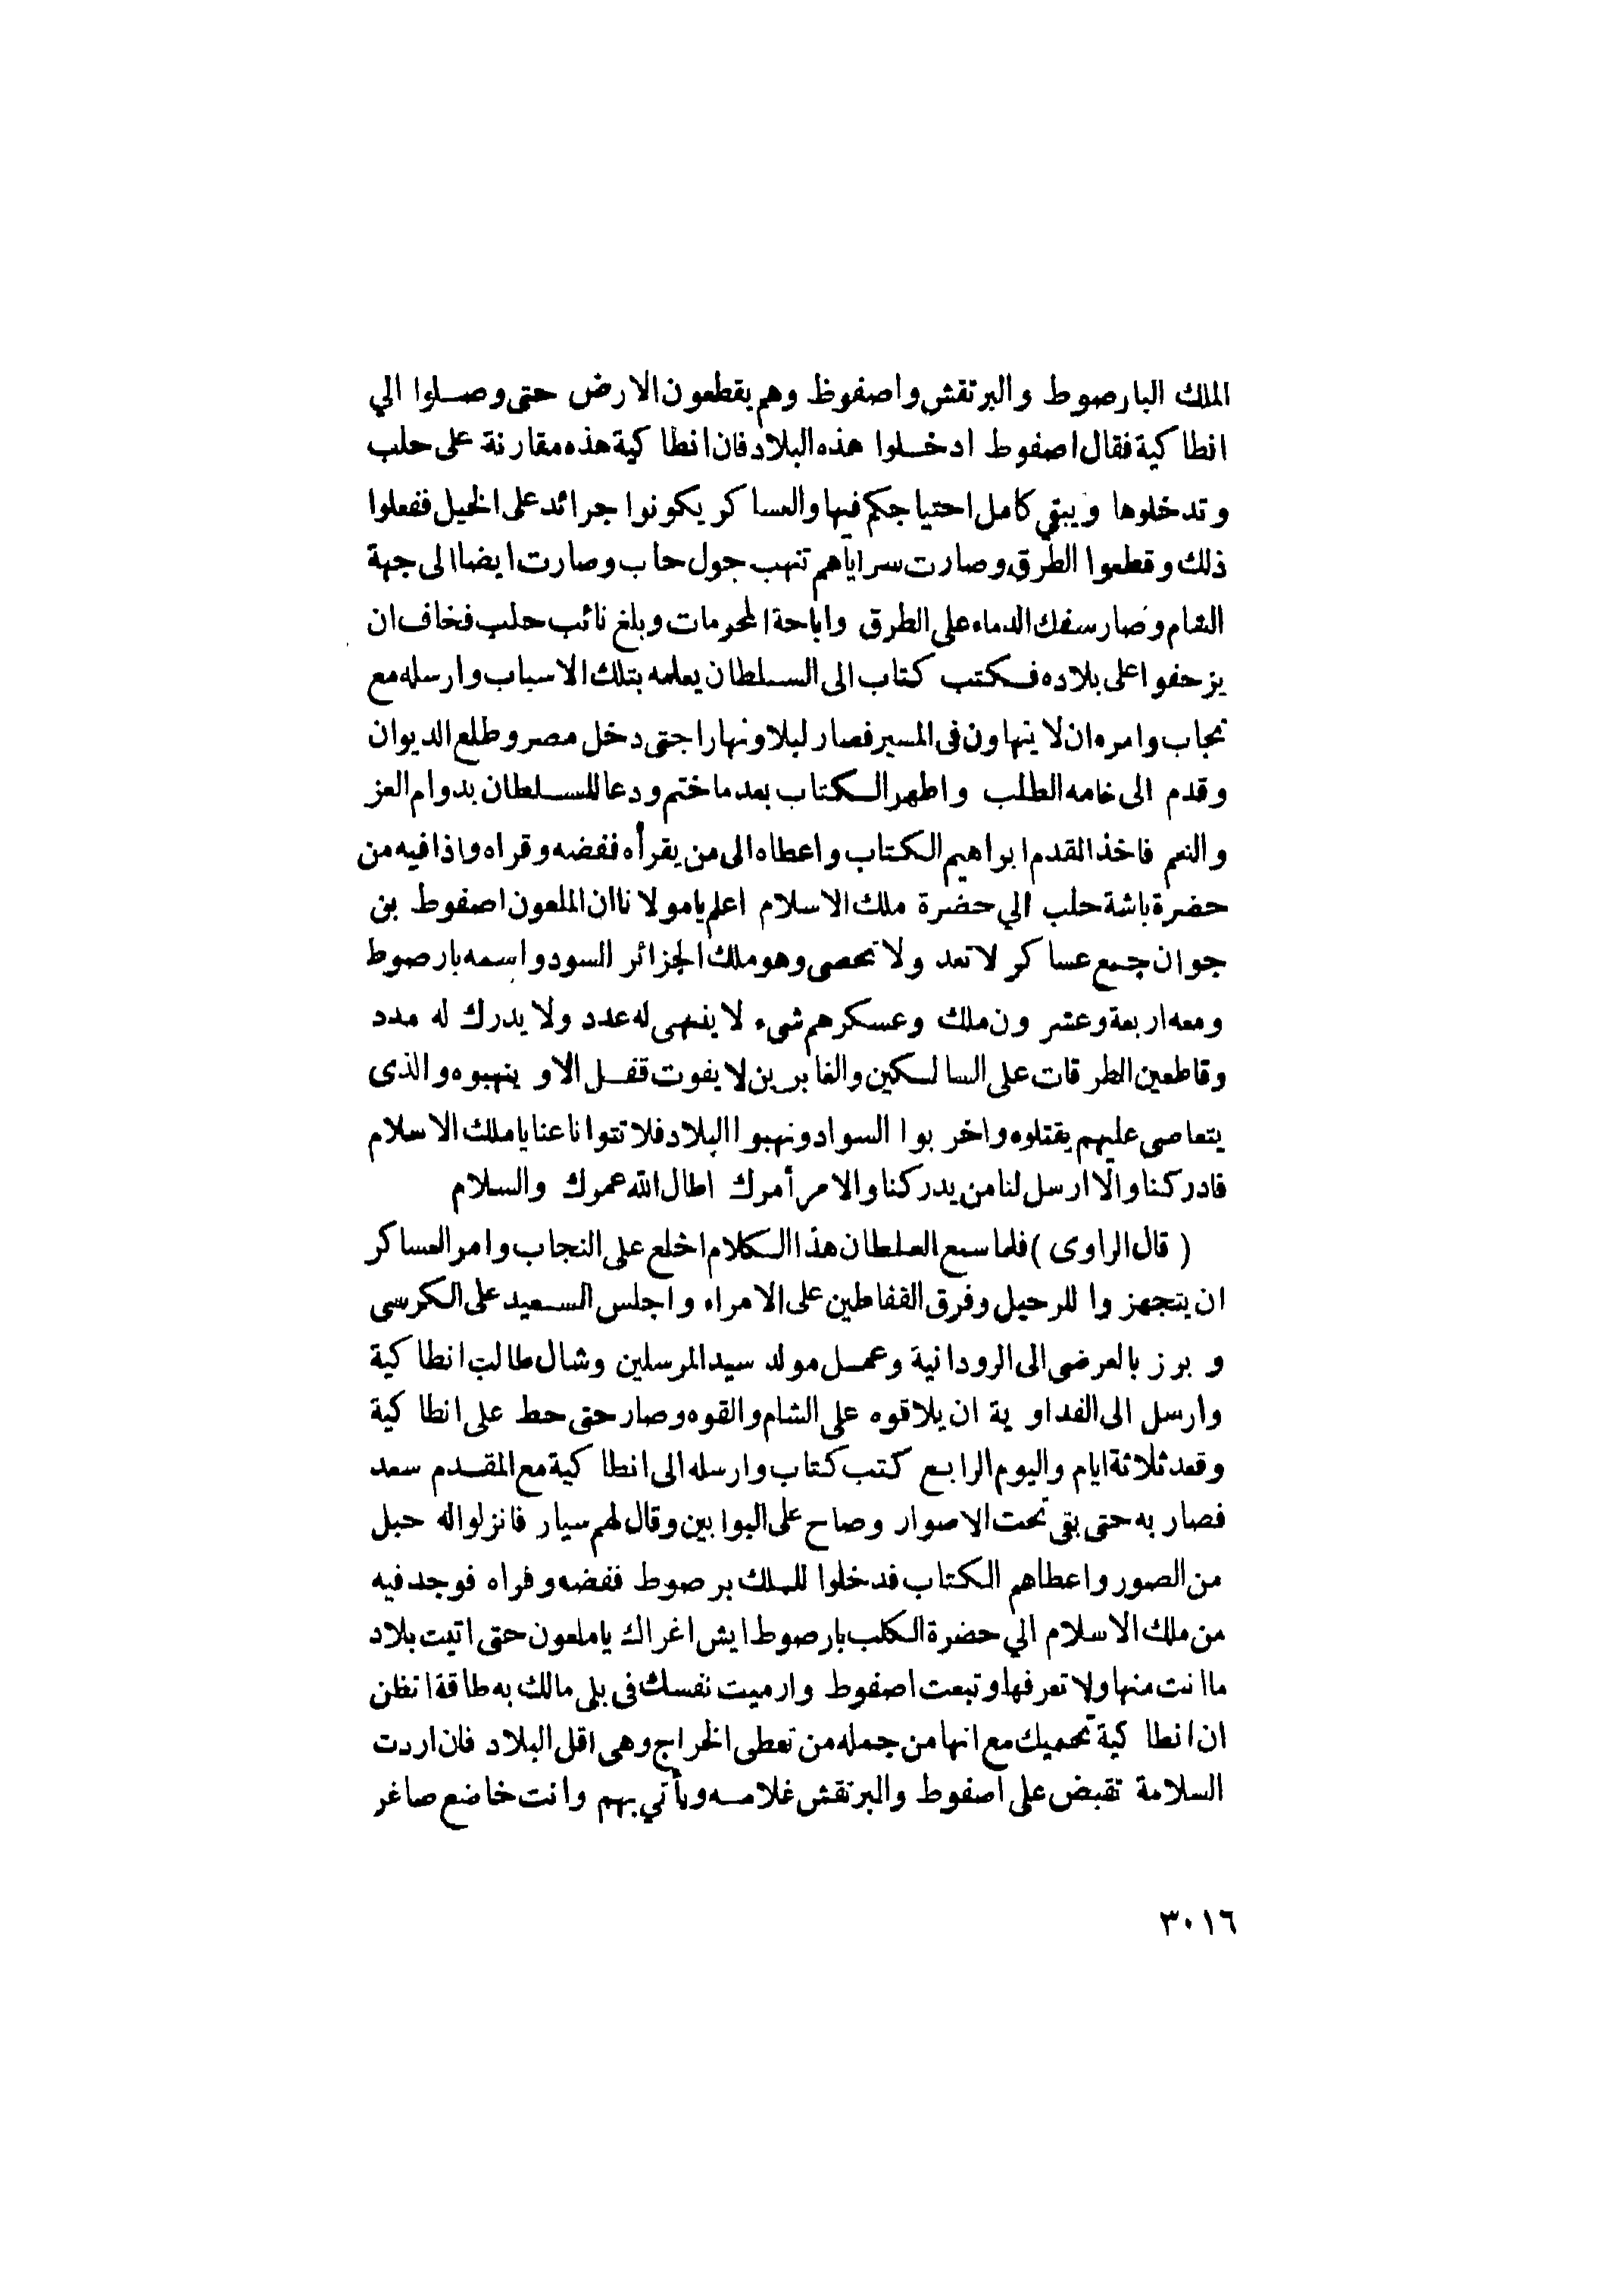 الملك البارصوط والبرتقش واصفوظ وهم يقطعون الارض حتى وصلوا الي
انطاكية فقال اصفوط ادخلوا هذه البلاد فان انطاكية هذه مقارنة على حلب
وتدخلوها ويبقي كامل احتياجكم فيها والعساكر يكونوا جرائد على الخيل ففعلوا
ذلك وقطعوا الطرق وصارت سراياهم تنهب حول حاب وصارت ايضا الى جهة
الشام وصار سفك الدماء على الطرق واباحة المحرمات وبلغ نائب حلب فخاف ان
يزحفوا على بلاده فكتب كتاب الى السلطان يعلمه بتلك الاسباب وارسله مع
نجاب وامره ان لا يتهاون فى المسير فصار ليلا ونهارا حتى دخل مصر وطلع الديوان
وقدم الى خامه الطلب واظهر الكتاب بعد ما ختم ودعا للسلطان بدوام العز
والنعم فاخذ القدم ابراهيم الكتاب واعطاه الى من يقرأه ففضه وقراه واذا فيه من
حضرة باشة حلب الي حضرة ملك الاسلام اعلم يا مولانا ان الملعون اصفوط بن
جوان جمع عساكر لا تعد ولا تحصى وهو ملك الجزائر السود واسمه بارصوط
ومعه اربعة وعشرون ملك وعسكرهم شىء لا ينهى له عدد ولا يدرك له مدد
وقاطعين الطرقات على السالكين والغابرين لا يفوت قفل الا وينهبوه والذى
يتعاصى عليهم يقتلوه واخربوا السواد ونهبوا البلاد فلا تتوانا عنا يا ملك الاسلام
فادركنا والا ارسل لنا من يدركنا والامر أمرك اطال الله عمرك والسلام
(قال الراوى) فلما سمع السلطان هذا الكلام اخلع على النجاب وامر العساكر
ان يتجهزوا للرحيل وفرق القفاطين على الامراء واجلس السعيد على الكرسى
وبرز بالعرضى الى الرودانية وعمل مولد سيد المرسلين وشال طالب انطاكية
وارسل الى الفداوية ان يلاقوه على الشام والقوه وصار حتى حط على انطاكية
وقعد ثلاثة ايام واليوم الرابع كتب كتاب وارسله الى انطاكية مع المقدم سعد
فصار به حتى بقى تحت الاصوار وصاح على البوابين وقال لهم سيار فانزلوا له حبل
من الصور واعطاهم الكتاب فدخلوا للملك برصوط ففضه وقراه فوجد فيه
من ملك الاسلام الي حضرة الكلب بارصوط ايش اغراك يا ملعون حتى اتيت بلاد
ما انت منها ولا تعرفها وتبعت اصفوط وارميت نفسك فى بلى مالك به طاقة اتظن
ان انطاكية تحميك مع انها من جمله من تعطى الخراج وهى اقل البلاد فان اردت
السلامة تقبض على اصفوط والبرتقش غلامه وتأتي بهم وانت خاضع صاغر
٣٠١٦